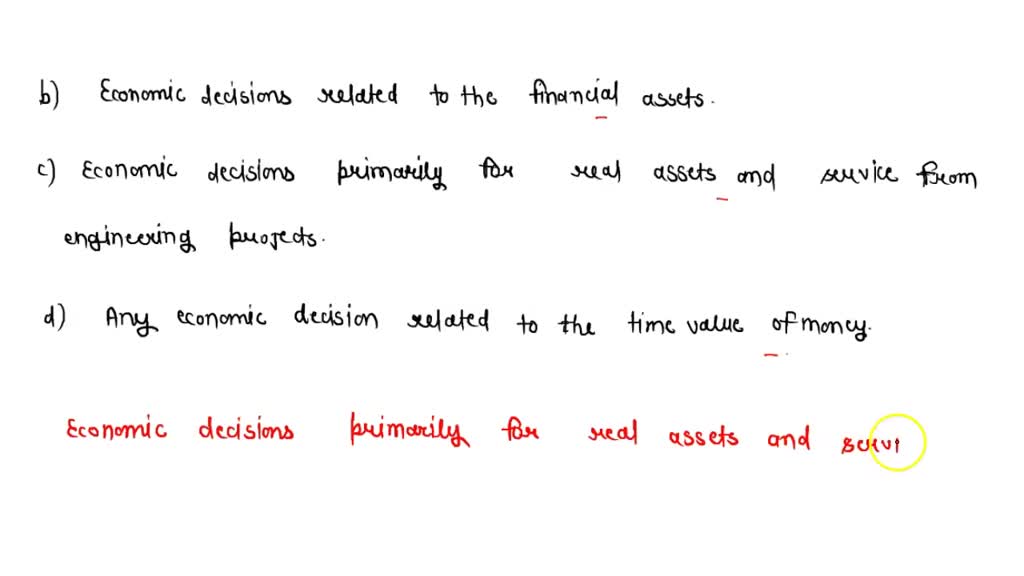 b) Economic decisions related to the financial assets.
c) Economic decisions primarily for real assets and service from
engineering projects.
d) Any economic decision related to the time value of money.
Economic decisions primarily for real assets and servi